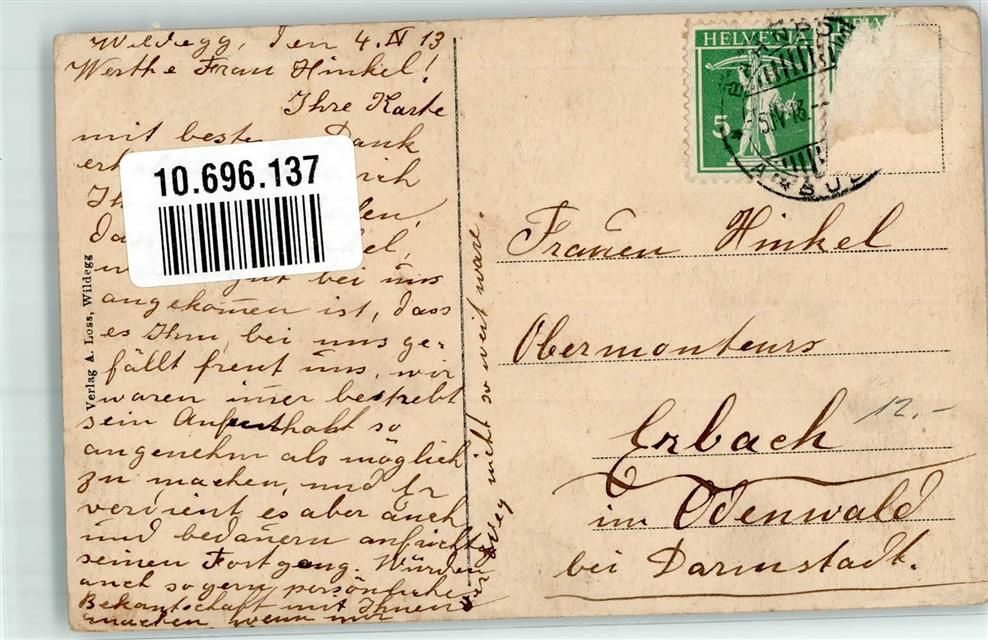 Wildegg, den 4. IV 13
Werthe Frau Hinkel!
Ihre Karte
mit beste Dank
10.696.137
gut bei uns
angekomen ist, dass
es Ihm bei uns ge-
fällt freut uns, wir
waren imer bestrebt
sein Aufenthalt so
angenehm als möglich
zu machen, und Er
verdient es aber auch
und bedauern aufricht
seinen Fortgang. Würden
auch so gern persönliche
Bekantschaft mit Ihnen
machen wenn nur
der Weg nicht so weit wäre.
Verlag A. Loss, Wildegg
HELVETIA
HELV
5
AMBUL
Frauen Hinkel
Obermonteurs
Erbach
12.-
im Odenwald
bei Darmstadt.